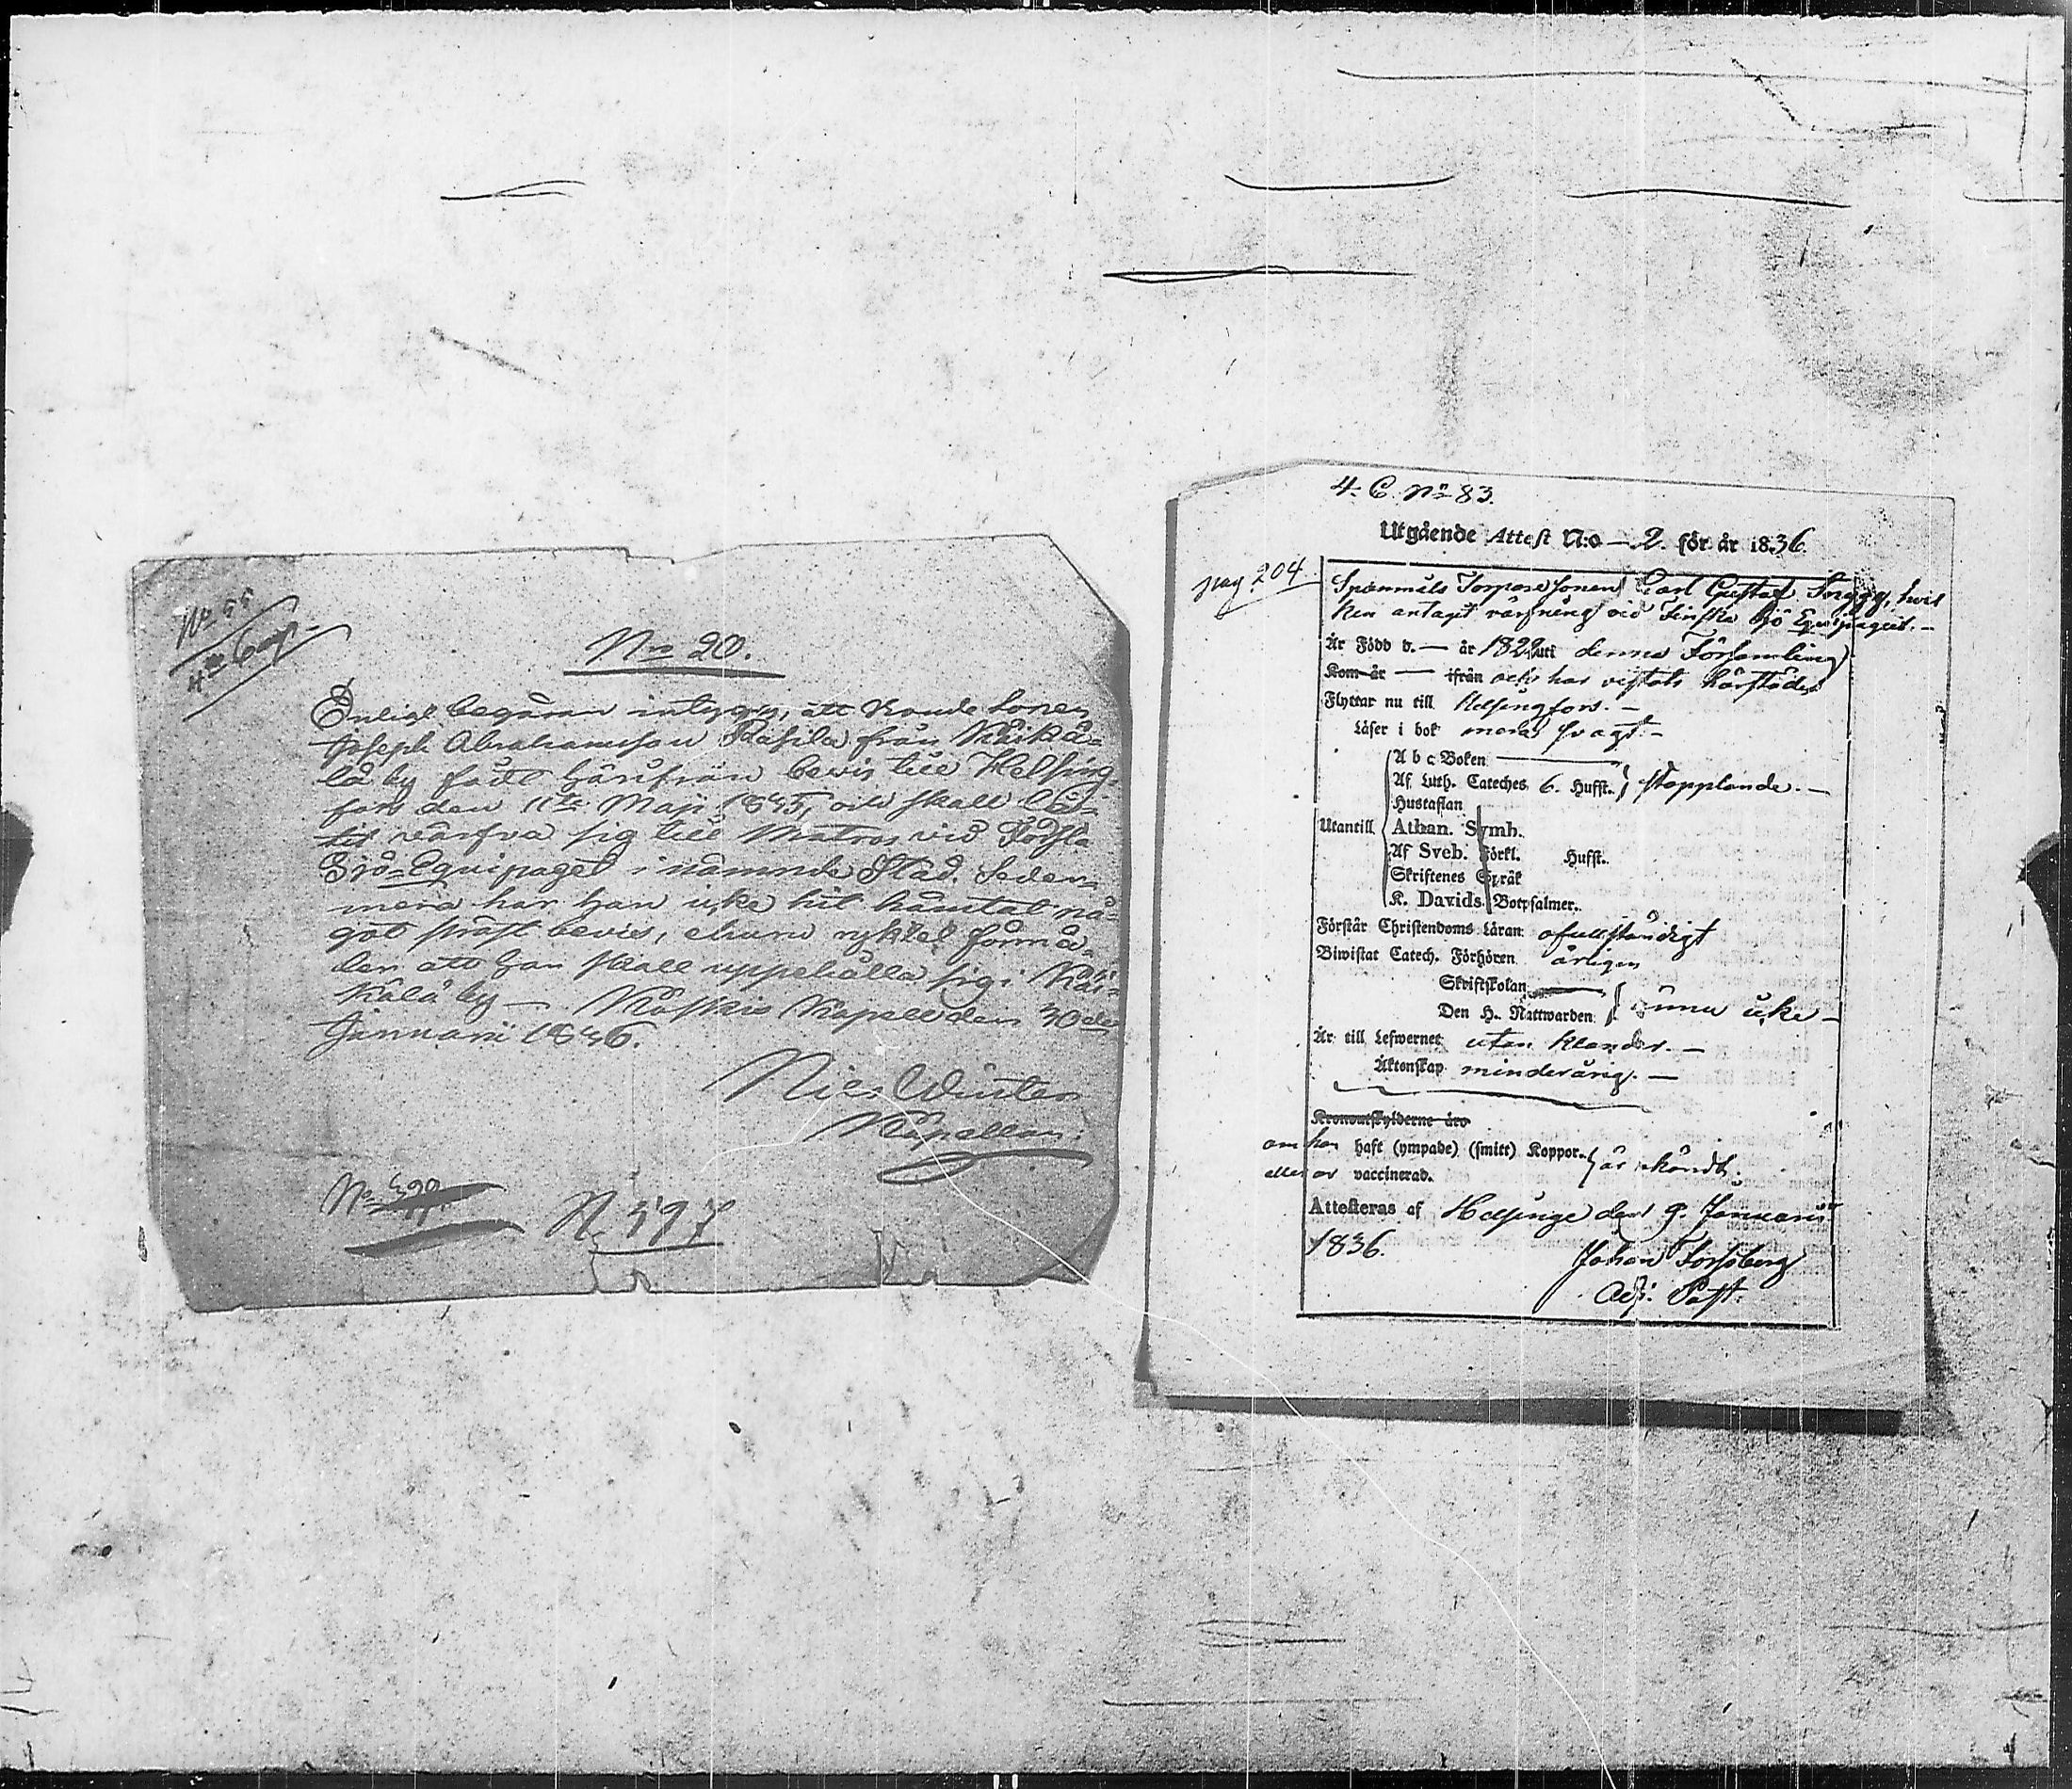 No 55
4de Com.
No 20.
Enligt begäran intygas, att Bonde Sonen
Joseph Abrahamsson Rasila från Käikä-
lä by fådt härifrån bevis till Helsing-
fors den 11te Maji 1835, och skall
värfva sig till Matros vid Första
Sjö-Equipaget i nämnde Stad. Seder-
mera har han icke hit hämtat nå-
got präst bevis, ehuru ryktet förmä-
ler att han skall uppehålla sig i Käi-
kälä by — Koskis Kapell den 30de
Januarii 1836.
Nils Winter
Kapellan.
No
N. 597
4. C. No 83.
Utgående Attest N:o — 2. för år 1836.
pag. 204
Torpare Sonen Carl Gustaf hvil
ken antagit värfning vid Finska Sjö Equipaget. —
Är Född d. — år 1822 uti denna Församling
Kom år — ifrån och har vistats härstädes
Flyttar nu till Helsingfors. —
Läser i bok svagt. —
A b c Boken
Af Luth. Cateches 6. Hufst. stapplande. —
Hustaflan
Utantill Athan. Symb.
Af Sveb. Förkl. Hufst.
Skriftenes Språk
K. Davids Botpsalmer.
Förstår Christendoms Läran ofullständigt
Biwistat Catech. Förhören årligen
Skriftskolan
Den H. Nattwarden ännu icke —
Är till Lefwernet utan klander. —
Äktenskap minderårig. —
Kronoutskylderne äro
om han haft (ympade) (smitt) Koppor
eller är vaccinerad. är okändt.
Attesteras af Helsinge den 9. Januarii
1836.
Johan Forssberg
Adj. Past.